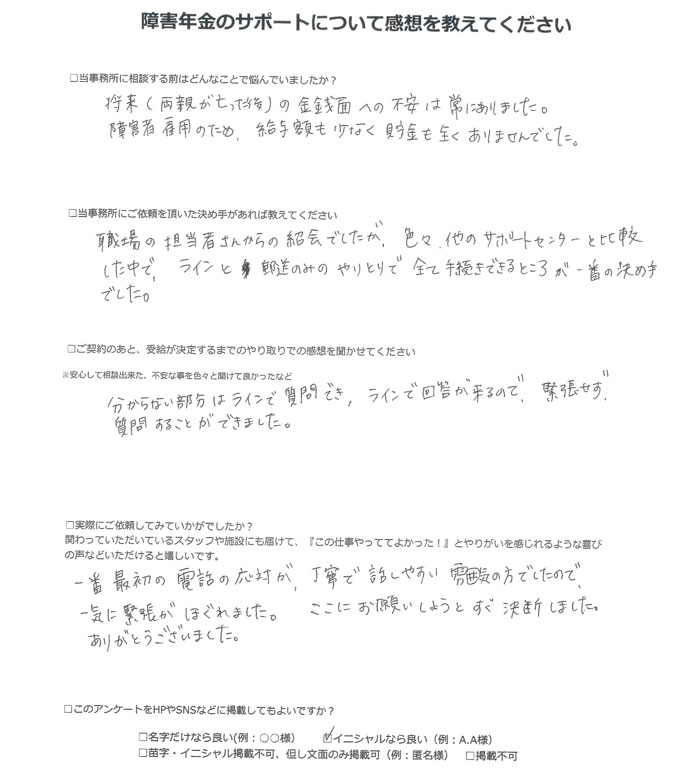 障害年金のサポートについて感想を教えてください
□当事務所に相談する前はどんなことで悩んでいましたか？
将来(両親が亡った後)の金銭面への不安は常にありました。
障害者雇用のため、給与額も少なく貯金も全くありませんでした。
□当事務所にご依頼を頂いた決め手があれば教えてください
職場の担当者さんからの紹会でしたが、色々、他のサポートセンターと比較
した中で、ラインと郵送のみのやりとりで全て手続きできるところが一番の決め手
でした。
□ご契約のあと、受給が決定するまでのやり取りでの感想を聞かせてください
※安心して相談出来た、不安な事を色々と聞けて良かったなど
分からない部分はラインで質問でき、ラインで回答が来るので、緊張せず、
質問することができました。
□実際にご依頼してみていかがでしたか？
関わっていただいているスタッフや施設にも届けて、『この仕事やっててよかった！』とやりがいを感じれるような喜び
の声などいただけると嬉しいです。
一番最初の電話の応対が、丁寧で話しやすい雰囲気の方でしたので、
一気に緊張がほぐれました。 ここにお願いしようとすぐ決断しました。
ありがとうございました。
□このアンケートをHPやSNSなどに掲載してもよいですか？
□名字だけなら良い(例：○○様) ☑イニシャルなら良い（例：A.A様）
□苗字・イニシャル掲載不可、但し文面のみ掲載可（例：匿名様） □掲載不可